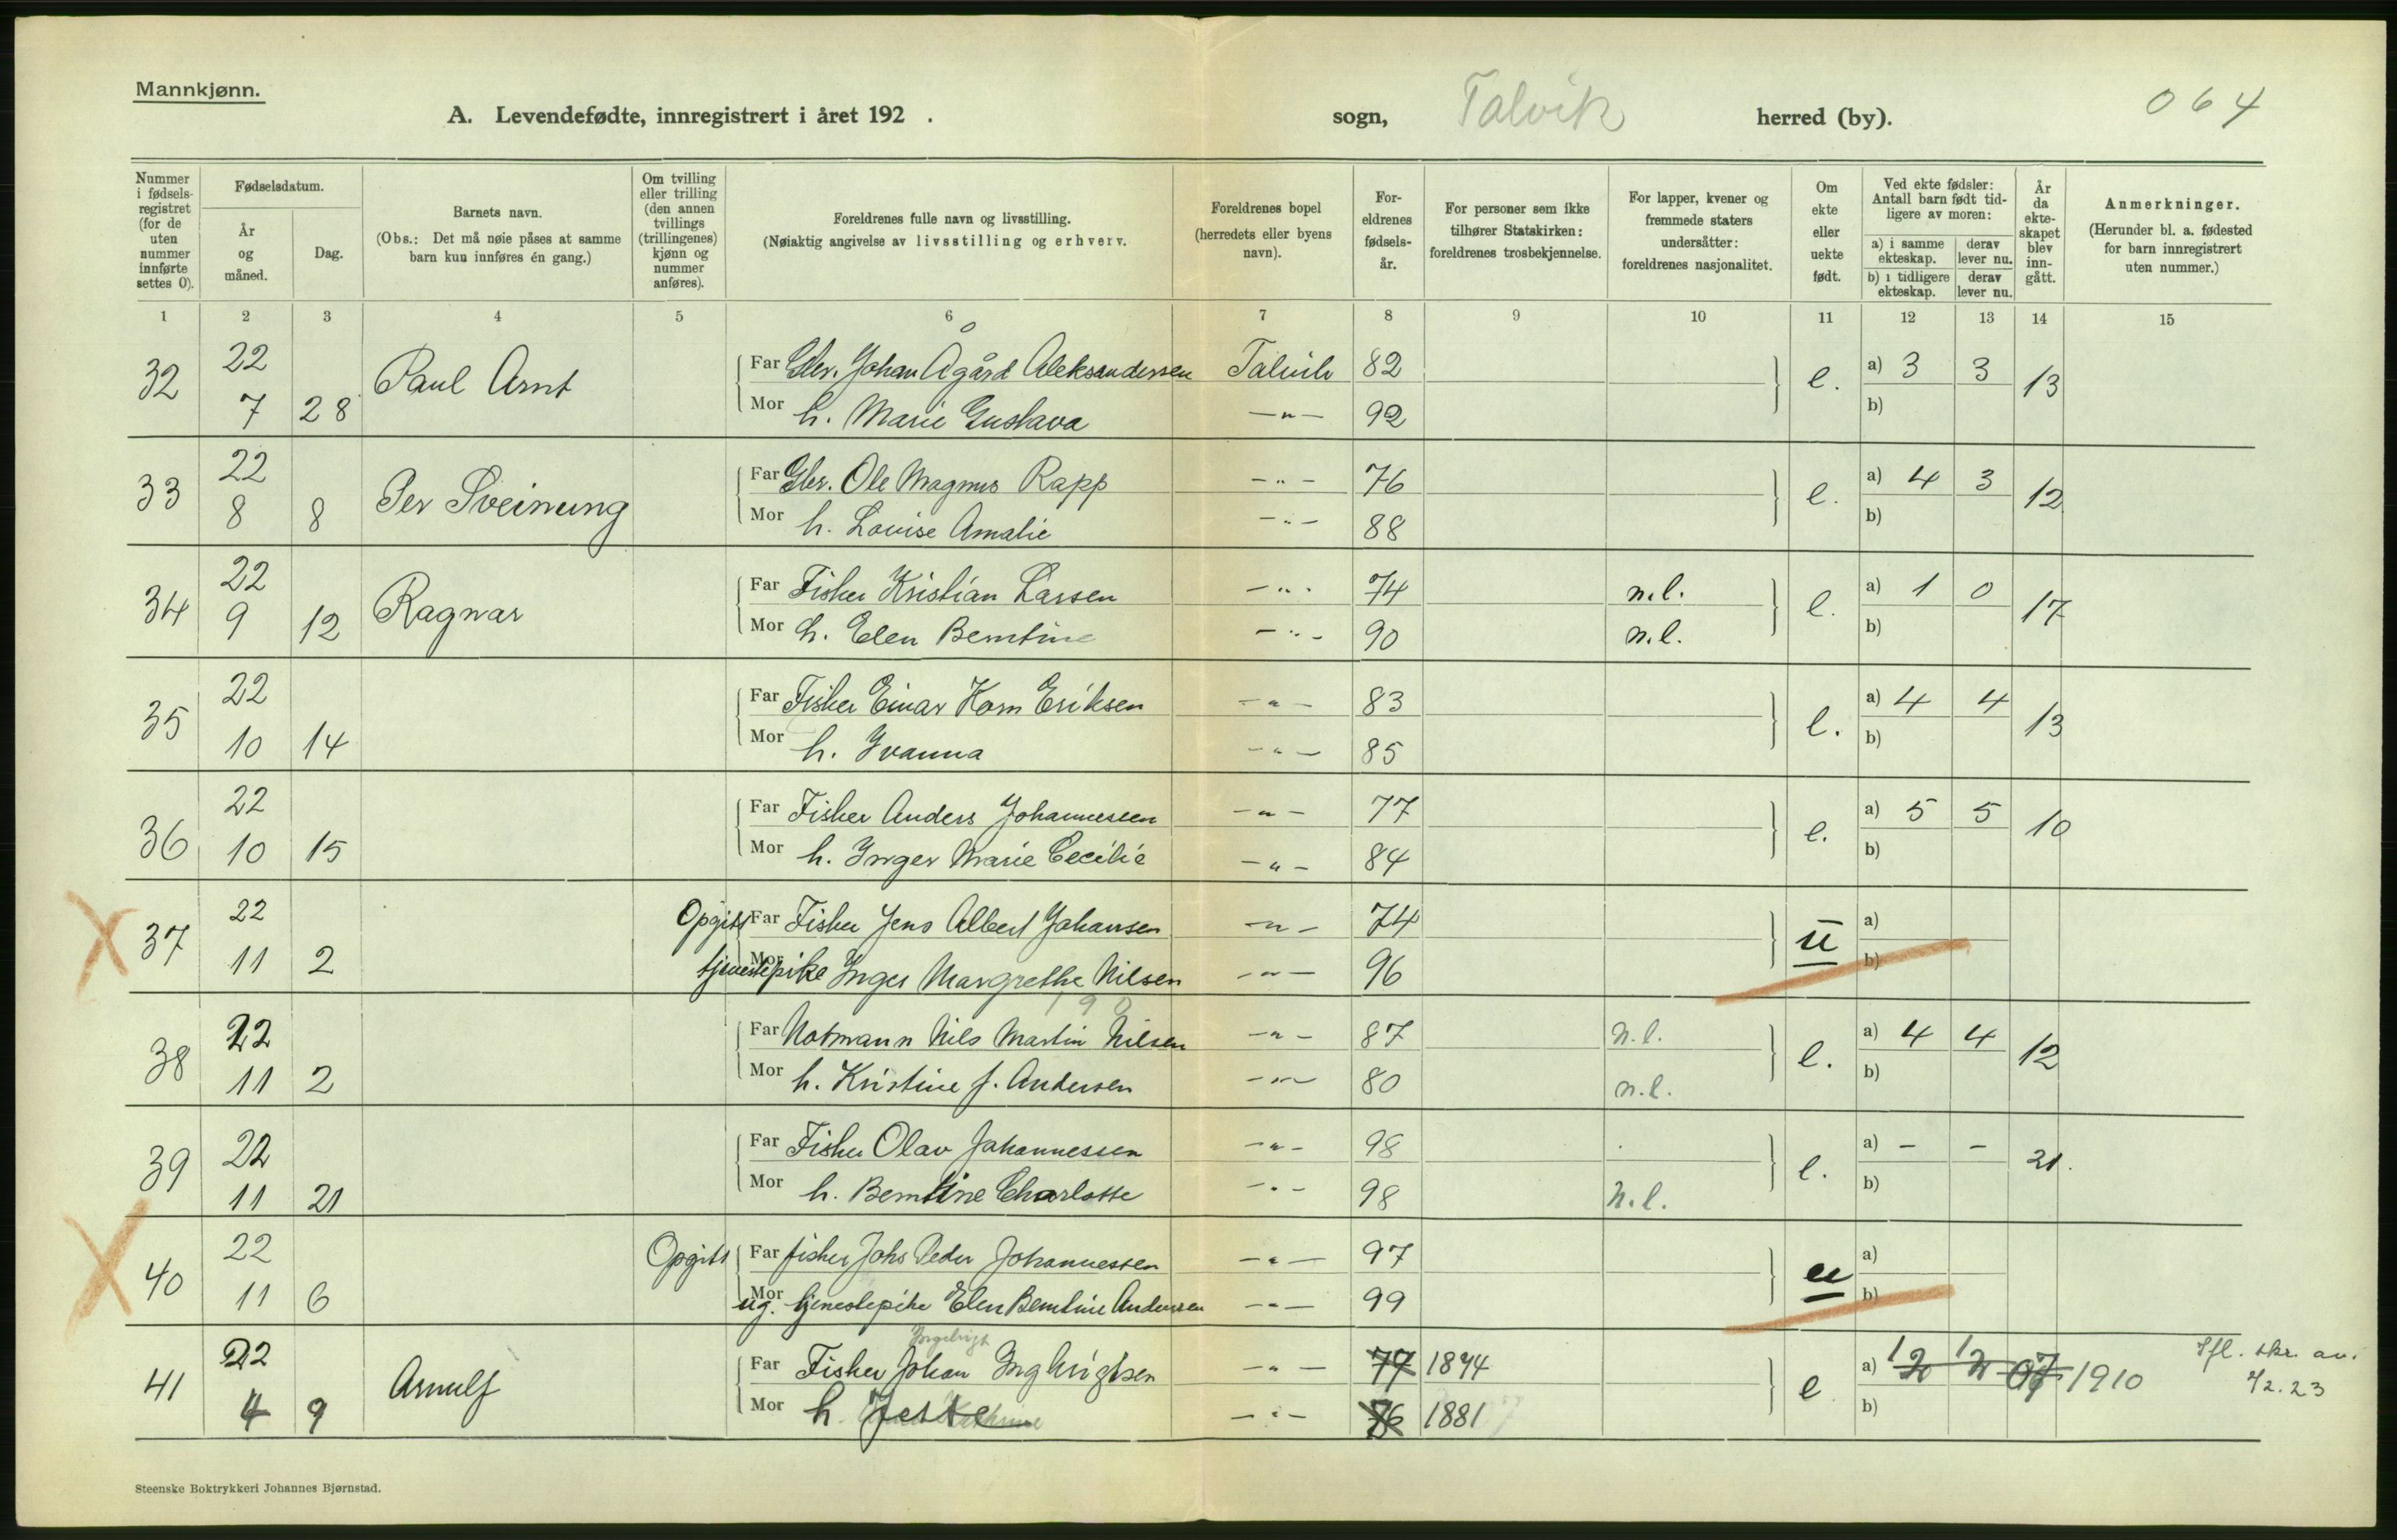 Mannkjønn.
A. Levendefødte, innregistrert i året 192 . sogn, Talvik herred (by). 064
Nummer i fødsels-registret (for de uten nummer innførte settes 0).
Fødselsdatum.
År og måned.
Dag.
Barnets navn.
(Obs.: Det må nøie påses at samme barn kun innføres én gang.)
Om tvilling eller trilling (den annen tvillings (trillingenes) kjønn og nummer anføres).
Foreldrenes fulle navn og livsstilling.
(Nøiaktig angivelse av livsstilling og erhverv.
Foreldrenes bopel (herredets eller byens navn).
For-eldrenes fødsels-år.
For personer som ikke tilhører Statskirken: foreldrenes trosbekjennelse.
For lapper, kvener og fremmede staters undersåtter: foreldrenes nasjonalitet.
Om ekte eller uekte født.
Ved ekte fødsler: Antall barn født tid-ligere av moren:
a) i samme ekteskap. derav lever nu.
b) i tidligere ekteskap. derav lever nu.
År da ekte-skapet blev inn-gått.
Anmerkninger.
(Herunder bl. a. fødested for barn innregistrert uten nummer.)
1 2 3 4 5 6 7 8 9 10 11 12 13 14 15
32 22 Paul Arnt Far Gbr. Johan Ågård Aleksandersen Talvik 82 e. a) 3 3 13
7 28 Mor h. Marie Gustava —"— 92 b)
33 22 Per Sveinung Far Gbr. Ole Magnus Rapp —"— 76 e. a) 4 3 12
8 8 Mor h. Lovise Amalie —"— 88 b)
34 22 Ragnar Far Fisker Kristian Larsen —"— 74 n.l. e. a) 1 0 17
9 12 Mor h. Elen Berntine —"— 90 n.l. b)
35 22 Far Fisker Einar Korn Eriksen —"— 83 e. a) 4 4 13
10 14 Mor h. Ivanna —"— 85 b)
36 22 Far Fisker Anders Johannessen —"— 77 e. a) 5 5 10
10 15 Mor h. Inger Marie Cecilie —"— 84 b)
X 37 22 Opgitt Far Fisker Jens Albert Johansen —"— 74 u a)
11 2 Mor tjenestepike Inger Margrethe Nilsen —"— 96 b)
38 22 Far Notmann Nils Martin Nilsen —"— 87 n.l. e. a) 4 4 12
11 2 Mor h. Kristine f. Andersen —"— 80 n.l. b)
39 22 Far Fisker Olav Johannessen —"— 98 e. a) – – 21.
11 21 Mor h. Berntine Charlotte —"— 98 n.l. b)
X 40 22 Opgitt Far fisker Johs Peder Johannessen —"— 97 u a)
11 6 Mor ug. tjenestepike Elen Berntine Andersen —"— 99 b)
Ingebrigt
41 22 Arnulf Far Fisker Johan Ingbrigtsen —"— 77 1874 e a) 1 2 1 2 07 1910 Ifl. skr. av.
4 9 Mor h. Jette —"— 76 1881 b) 7/2.23
Steenske Boktrykkeri Johannes Bjørnstad.